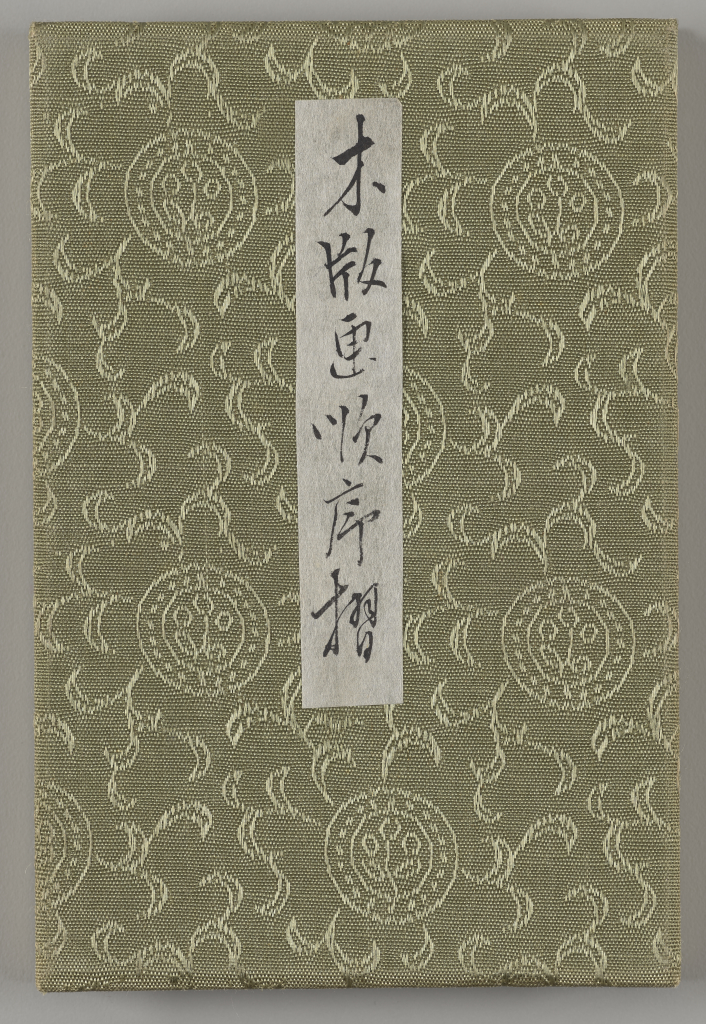 木版画順序摺